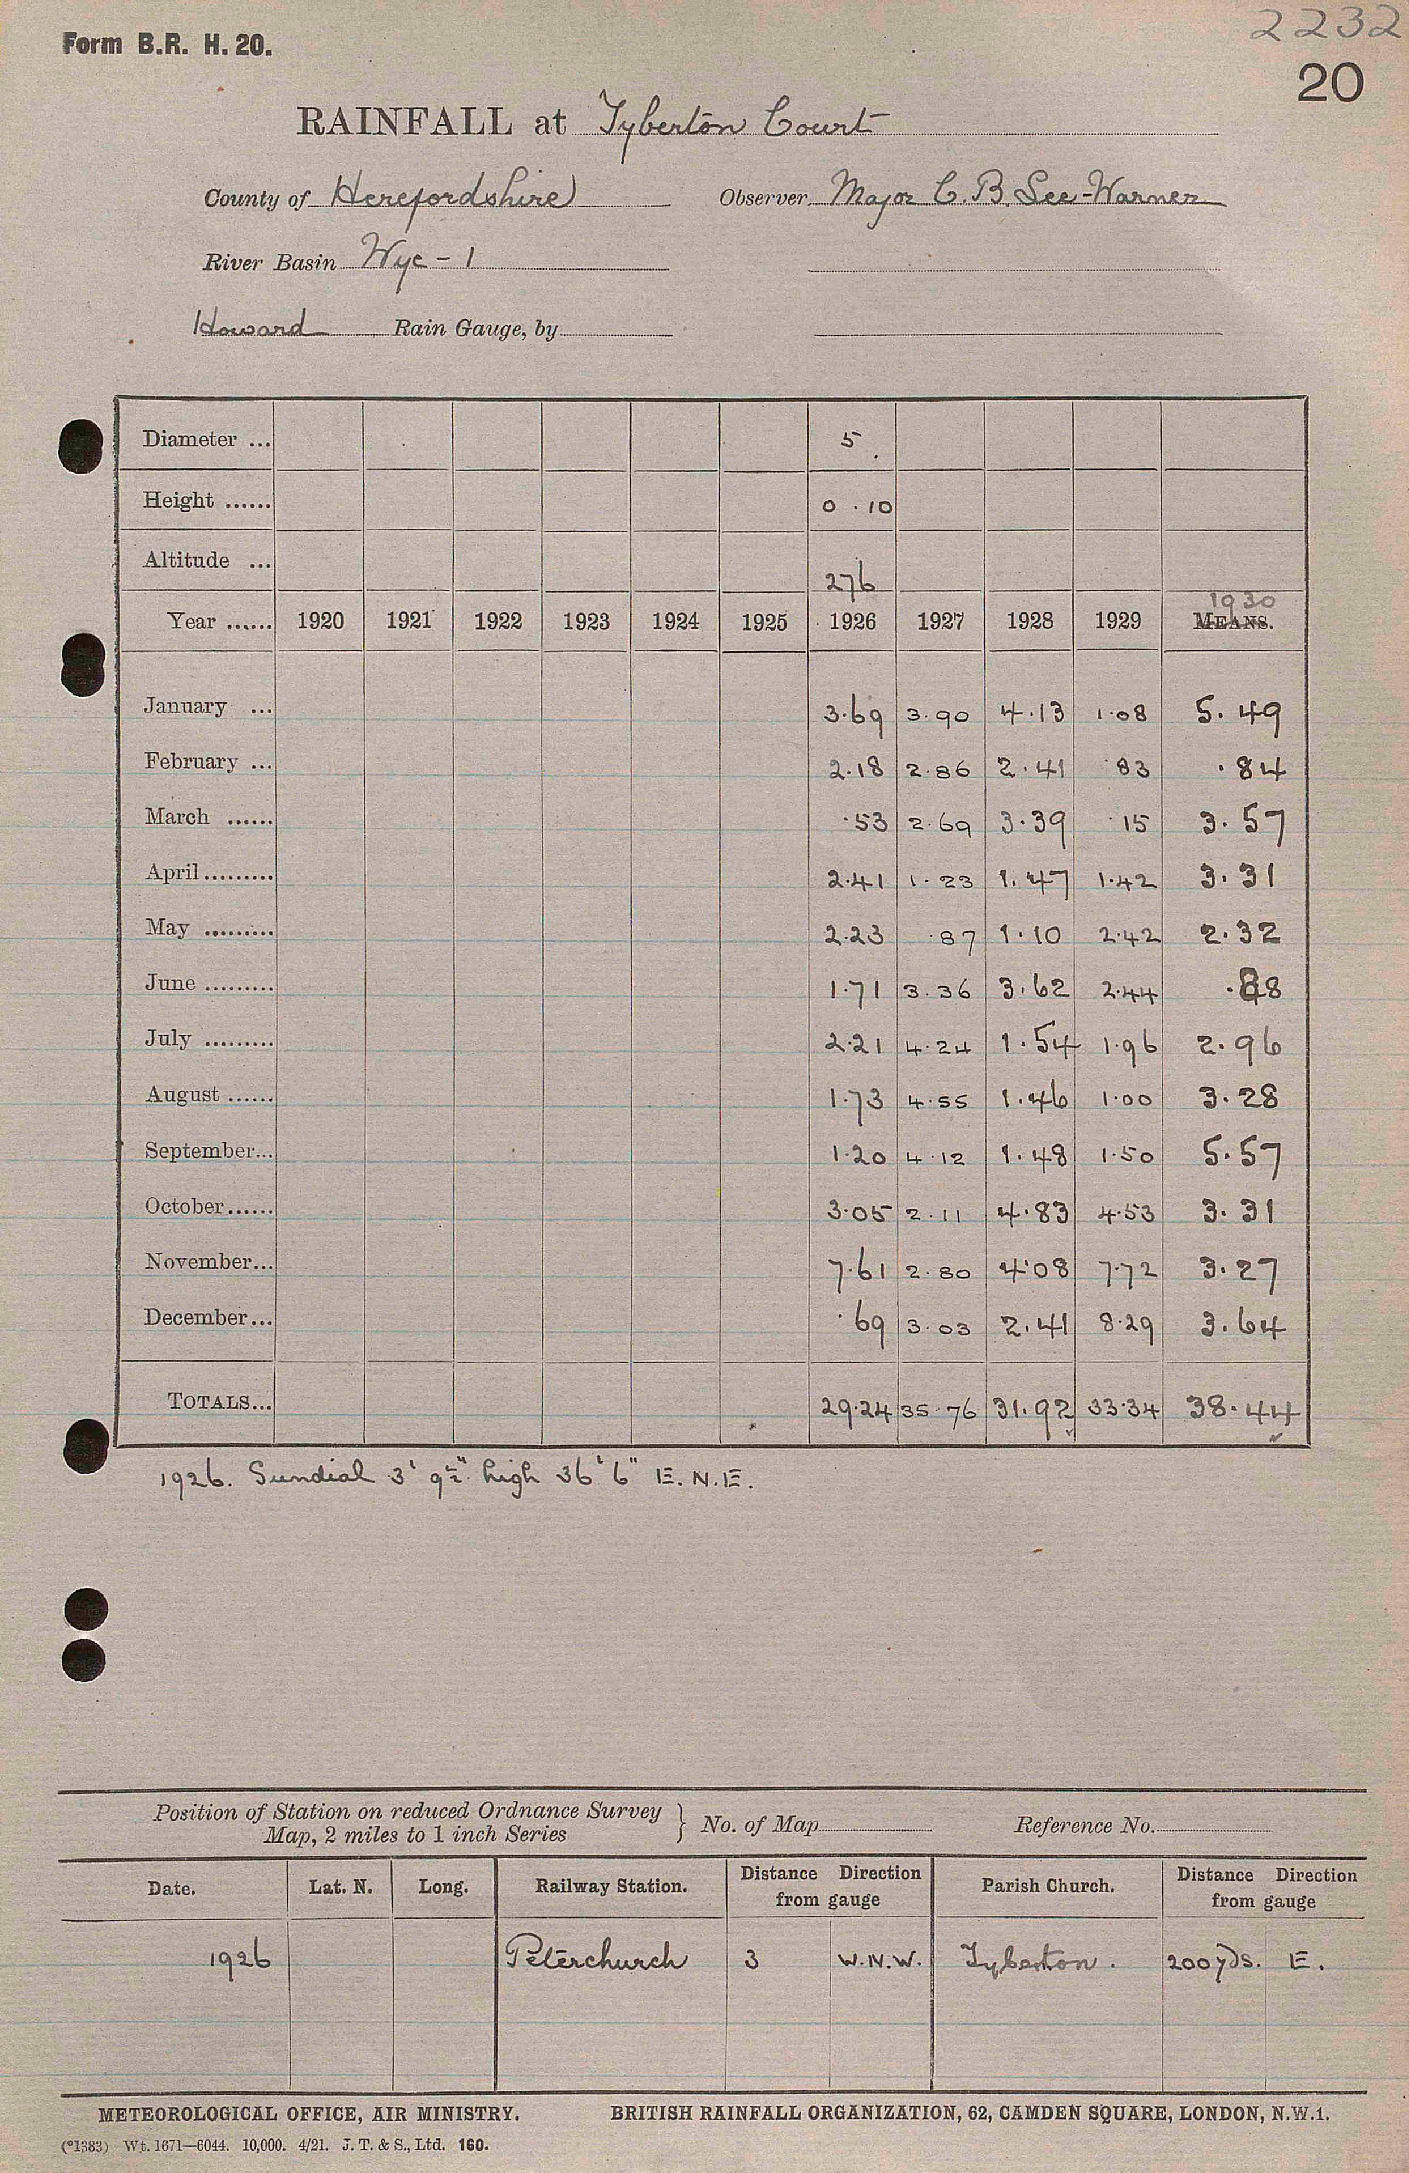 2232
Form B.R. H. 20.
20
RAINFALL at Tyberton Court
County of Herefordshire Observer Major C. B. Lee-Warner
River Basin Wye - 1
Howard Rain Gauge, by
Diameter ... 5
Height ...... 0 . 10
Altitude ... 276
1930
Year ...... 1920 1921 1922 1923 1924 1925 1926 1927 1928 1929 MEANS.
January ... 3.69 3.90 4.13 1.08 5.49
February ... 2.18 2.86 2.41 .83 .84
March ...... .53 2.69 3.39 .15 3.57
April ......... 2.41 1.23 1.47 1.42 3.31
May ......... 2.23 .87 1.10 2.42 2.32
June ......... 1.71 3.36 3.62 2.44 .88
July ......... 2.21 4.24 1.54 1.96 2.96
August ...... 1.73 4.55 1.46 1.00 3.28
September... 1.20 4.12 1.48 1.50 5.57
October...... 3.05 2.11 4.83 4.53 3.31
November... 7.61 2.80 4.08 7.72 3.27
December... .69 3.03 2.41 8.29 3.64
TOTALS... 29.24 35.76 31.92 33.34 38.44
1926. Sundial 3' 9½" high 36' 6" E.N.E.
Position of Station on reduced Ordnance Survey
Map, 2 miles to 1 inch Series } No. of Map Reference No.
Date. Lat. N. Long. Railway Station. Distance Direction from gauge Parish Church. Distance Direction from gauge
1926 Peterchurch 3 W.N.W. Tyberton. 200 yds. E.
METEOROLOGICAL OFFICE, AIR MINISTRY. BRITISH RAINFALL ORGANIZATION, 62, CAMDEN SQUARE, LONDON, N.W.1.
(*1383) Wt. 1671—6044. 10,000. 4/21. J. T. & S., Ltd. 160.